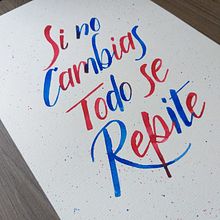 Si no
Cambias
Todo se
Repite